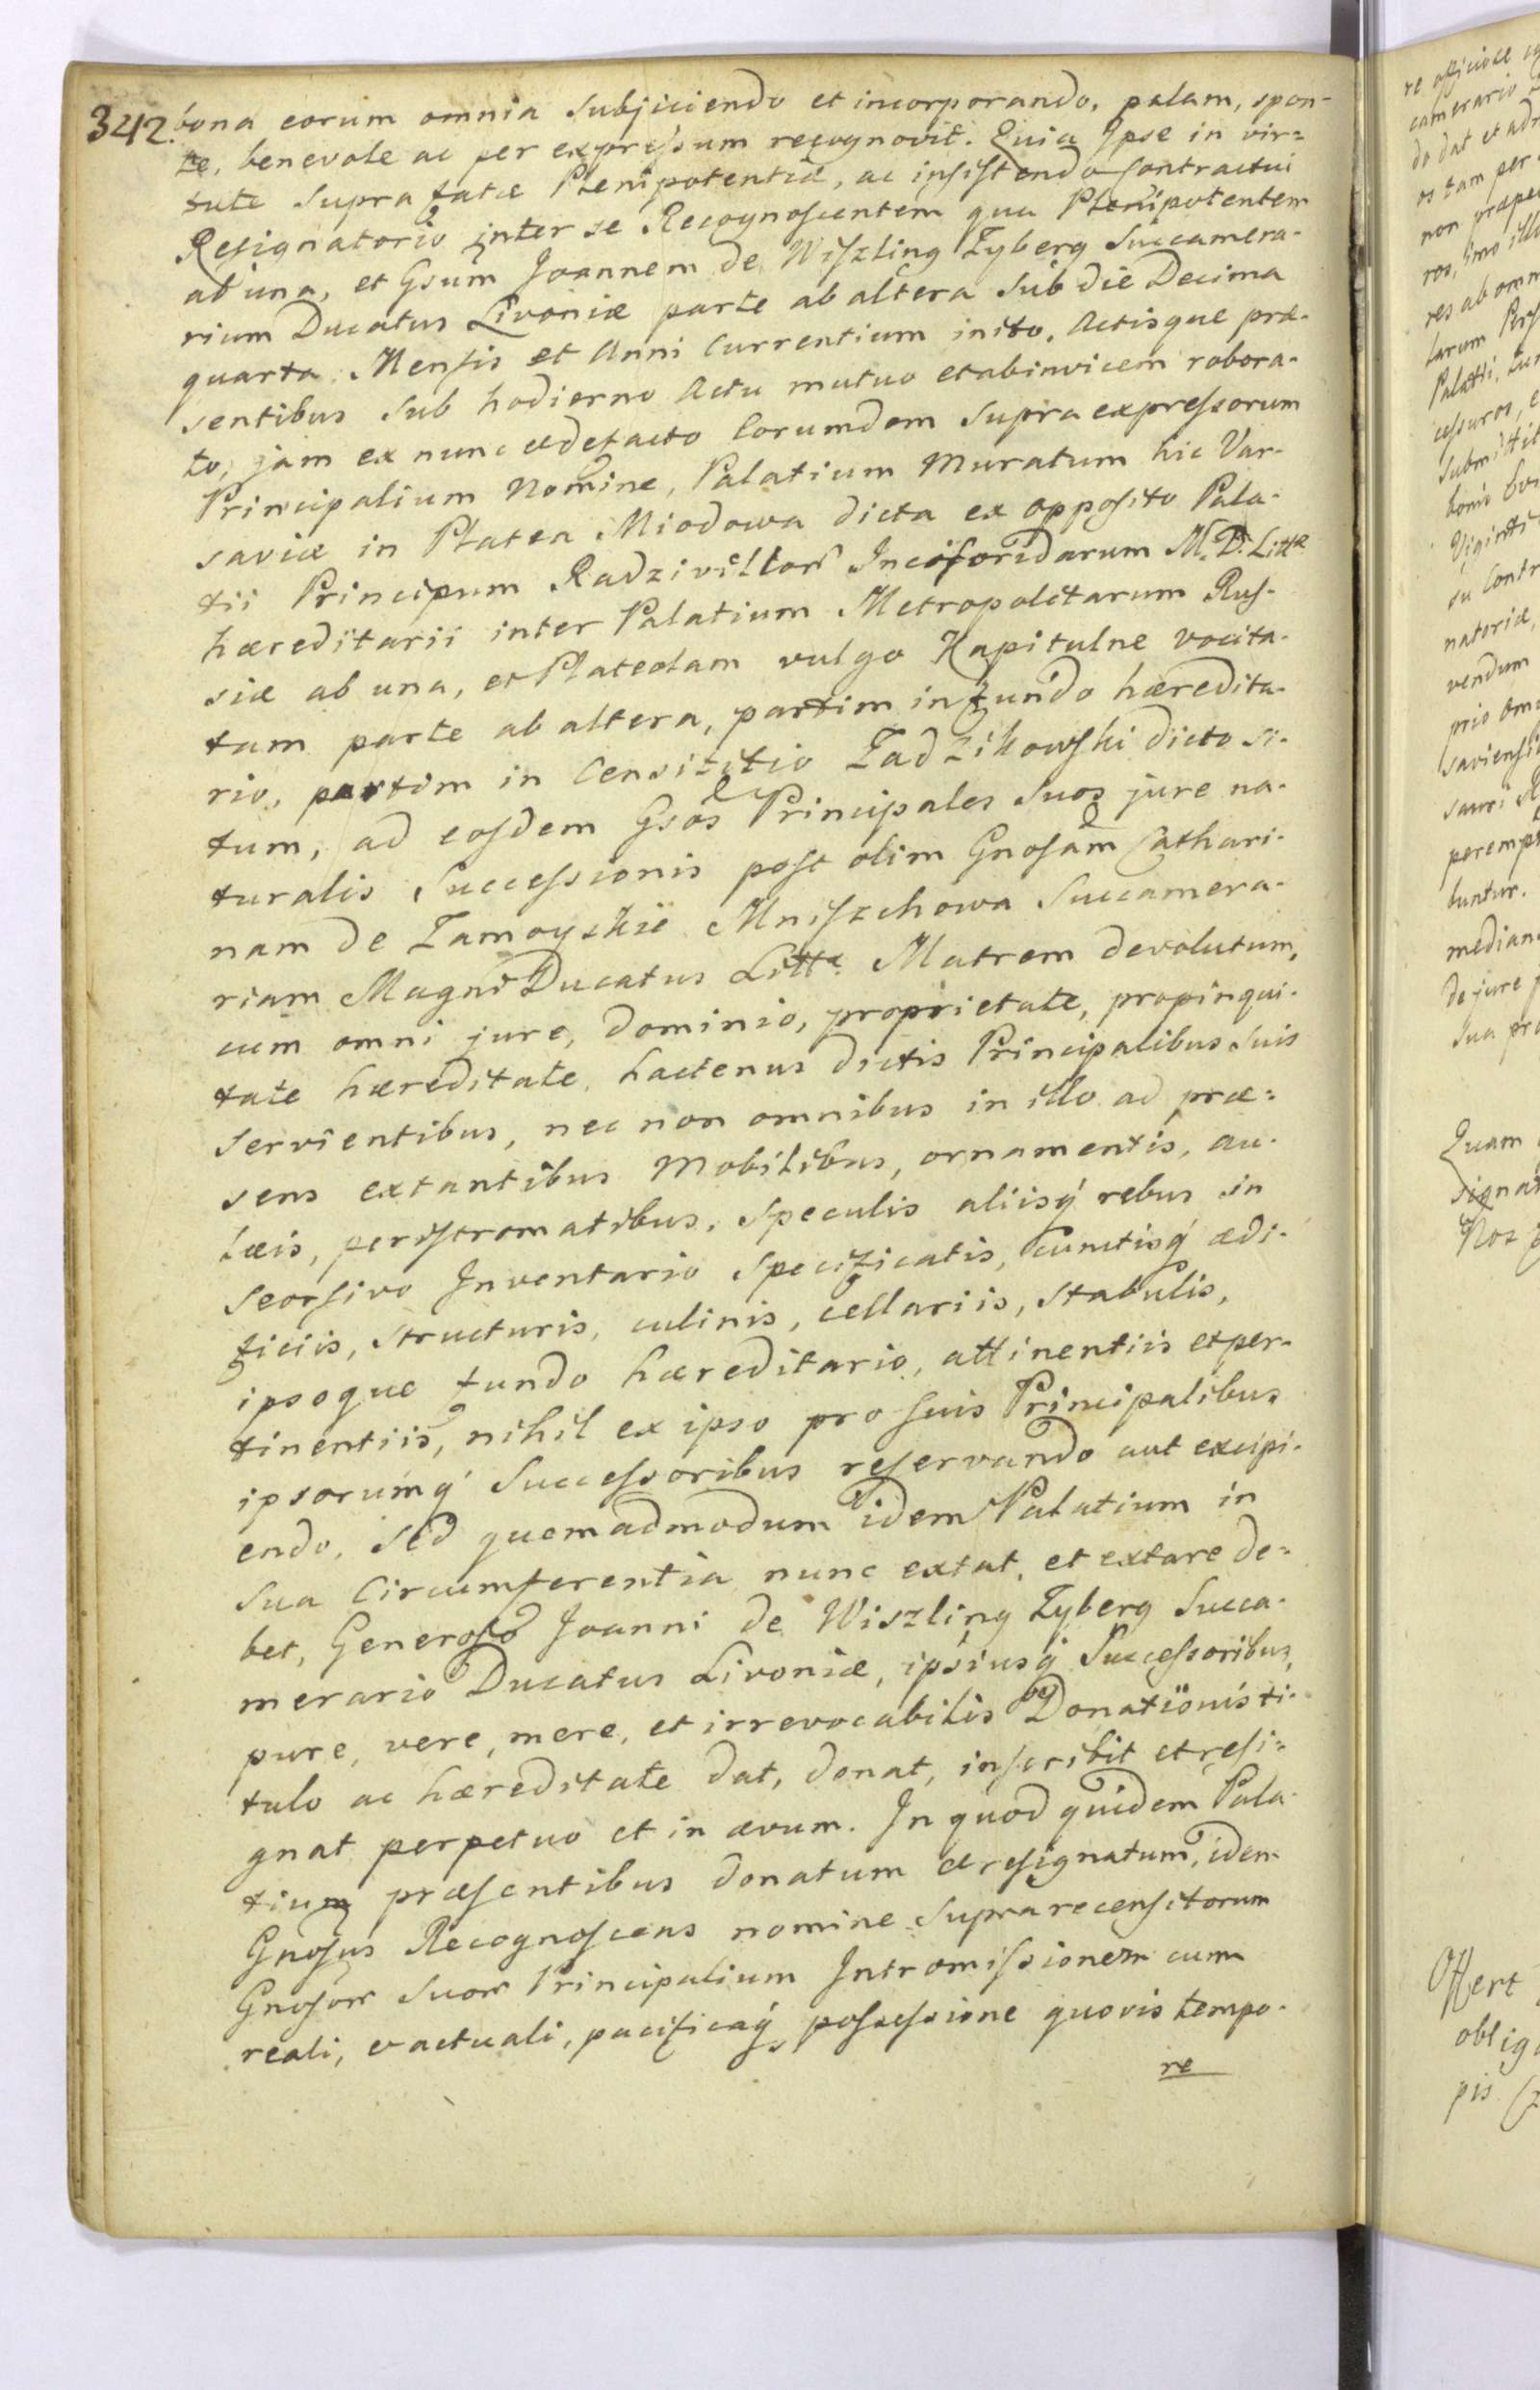 342. bona eorum omnia subjiciendo et incorporando, palam, spon-
te, benevole ac per expressum recognovit. Quia Ipse in vir=
tute supra fatæ Plenipotentiæ, ac insistendo Contractui
Resignatorio inter se Recognoscentem qua Plenipotentem
ab una, et Gsum Joannem de Wiszling Zyberg Succamera-
rium Ducatus Livoniæ parte ab altera sub die Decima
quarta Mensis et Anni Currentium inito, Actisque præ-
sentibus sub hodierno Actu mutuo et ab invicem robora-
to, jam ex nunc et de facto Eorumdem supra expressorum
Principalium Nomine, Palatium Muratum hic Var-
saviæ in Platea Miodowa dicta ex opposito Pala-
tii Principum Radziviłłor Incisoridarum M. D. Littæ
hæreditarii inter Palatium Metropolitarum Rus-
siæ ab una, et Plateolam vulgo Kapitulne vocita-
tam parte ab altera, partim in fundo hæredita-
rio, partim in Censititio Zadzikowski dicto si-
tum, ad eosdem Gsos Principales suos jure na-
turalis Successionis post olim Gnosam Cathari-
nam de Zamoyskie Mniszchowa Succamera-
riam Magni Ducatus Littæ Matrem devolutum,
cum omni jure, dominio, proprietate, propinqui-
tate hæreditate, hactenus dictis Principalibus suis
servientibus, nec non omnibus in illo ad præ=
sens extantibus Mobilibus, ornamentis, au-
læis, peristromatibus, speculis aliisq́ rebus in
seorsivo Inventario specificatis, cunctisq́ ædi-
ficiis, structuris, culinis, cellariis, stabulis,
ipsoque fundo hæreditario, attinentiis et per-
tinentiis, nihil ex ipso pro suis Principalibus
ipsorumq́ Successoribus reservando aut excipi-
endo, sed quemadmodum idem Palatium in
sua Circumferentia nunc extat, et extare de=
bet, Generoso Joanni de Wiszling Zyberg Succa-
merario Ducatus Livoniæ, ipsiusq́ Successoribus,
pure, vere, mere, et irrevocabilis Donationis ti-
tulo ac hæreditate dat, donat, inscribit et resi=
gnat perpetuo et in ævum. In quod quidem Pala-
tium præsentibus donatum et resignatum, idem
Gnosus Recognoscens nomine supra recensitorum
Gnosor suor Principalium Intromissionem cum
reali, et actuali, pacificaq́ possessione quovis tempo-
re